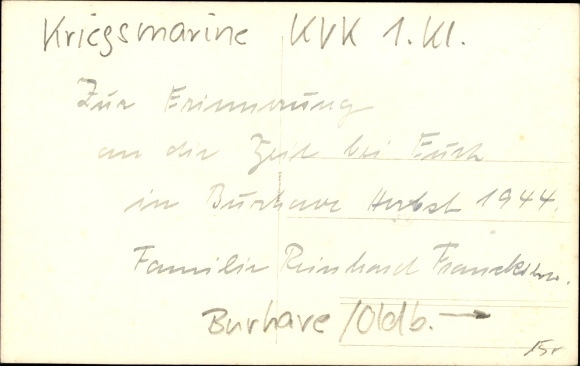 Kriegsmarine KVK 1. Kl.
Zur Erinnerung
an die Zeit bei Euch
in Burhave Herbst 1944.
Familie Reinhard
Burhave /Oldb. →